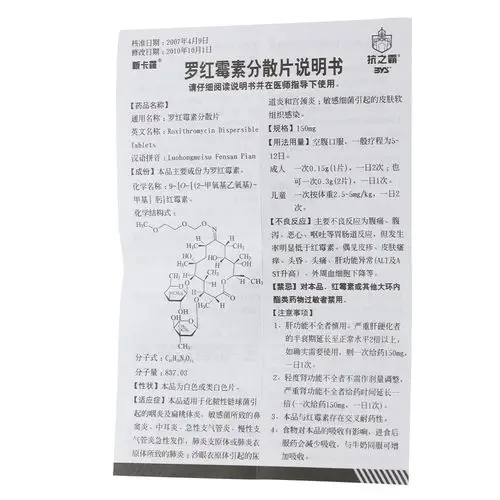 核准日期：2007年4月9日
修改日期：2010年10月1日
新卡蘿
罗红霉素分散片说明书
请仔细阅读说明书并在医师指导下使用。
抗之霸
BYS
【药品名称】
通用名称：罗红霉素分散片
英文名称：Roxithromycin Dispersible
Tablets
汉语拼音：Luohongmeisu Fensan Pian
【成份】本品主要成份为罗红霉素。
化学名称：9-{O-[(2-甲氧基乙氧基)-
甲基]肟}红霉素。
化学结构式：
分子式：C₄₁H₇₆N₂O₁₅
分子量：837.03
【性状】本品为白色或类白色片。
【适应症】本品适用于化脓性链球菌引
起的咽炎及扁桃体炎，敏感菌所致的鼻
窦炎、中耳炎、急性支气管炎、慢性支
气管炎急性发作，肺炎支原体或肺炎衣
原体所致的肺炎；沙眼衣原体引起的尿
道炎和宫颈炎；敏感细菌引起的皮肤软
组织感染。
【规格】150mg
【用法用量】空腹口服，一般疗程为5~
12日。
成人 一次0.15g(1片)，一日2次；也
可一次0.3g(2片)，一日1次。
儿童 一次按体重2.5~5mg/kg，一日2
次。
【不良反应】主要不良反应为腹痛、腹
泻、恶心、呕吐等胃肠道反应，但发生
率明显低于红霉素。偶见皮疹、皮肤瘙
痒、头昏、头痛、肝功能异常(ALT及A
ST升高)、外周血细胞下降等。
【禁忌】对本品、红霉素或其他大环内
酯类药物过敏者禁用。
【注意事项】
1．肝功能不全者慎用。严重肝硬化者
的半衰期延长至正常水平2倍以上，
如确实需要使用，则一次给药150mg，
一日1次。
2．轻度肾功能不全者不需作剂量调整，
严重肾功能不全者给药时间延长一
倍(一次给药150mg，一日1次)。
3．本品与红霉素存在交叉耐药性。
4．食物对本品的吸收有影响，进食后
服药会减少吸收，与牛奶同服可增
加吸收。